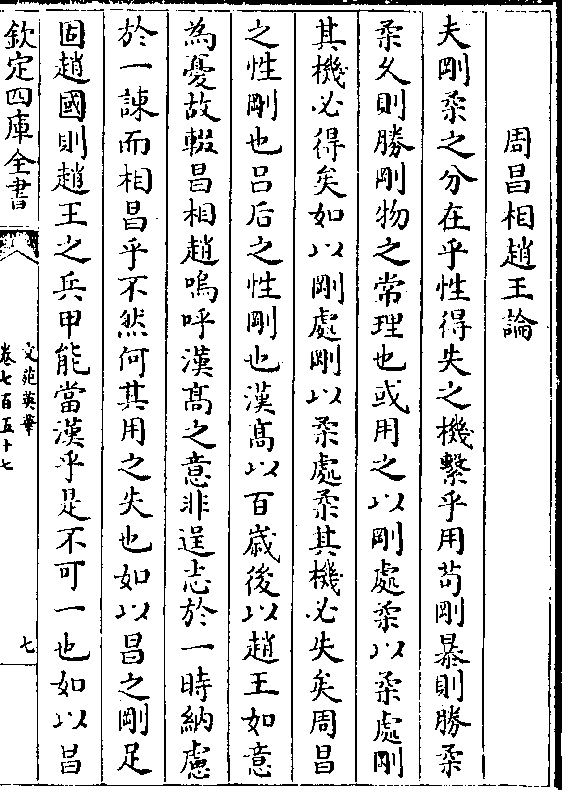 周昌相趙王論
夫剛柔之分在乎性得失之機繫乎用苟剛暴則勝柔
柔久則勝剛物之常理也或用之以剛處柔以柔處剛
其機必得矣如以剛處剛以柔處柔其機必失矣周昌
之性剛也吕后之性剛也漢髙以百歳後以趙王如意
為憂故輟昌相趙嗚呼漢髙之意非逞志於一時納慮
於一諫而相昌乎不然何其用之失也如以昌之剛足
固趙國則趙王之兵甲能當漢乎是不可一也如以昌
欽定四庫全書
文苑英華
卷七百五十七
七